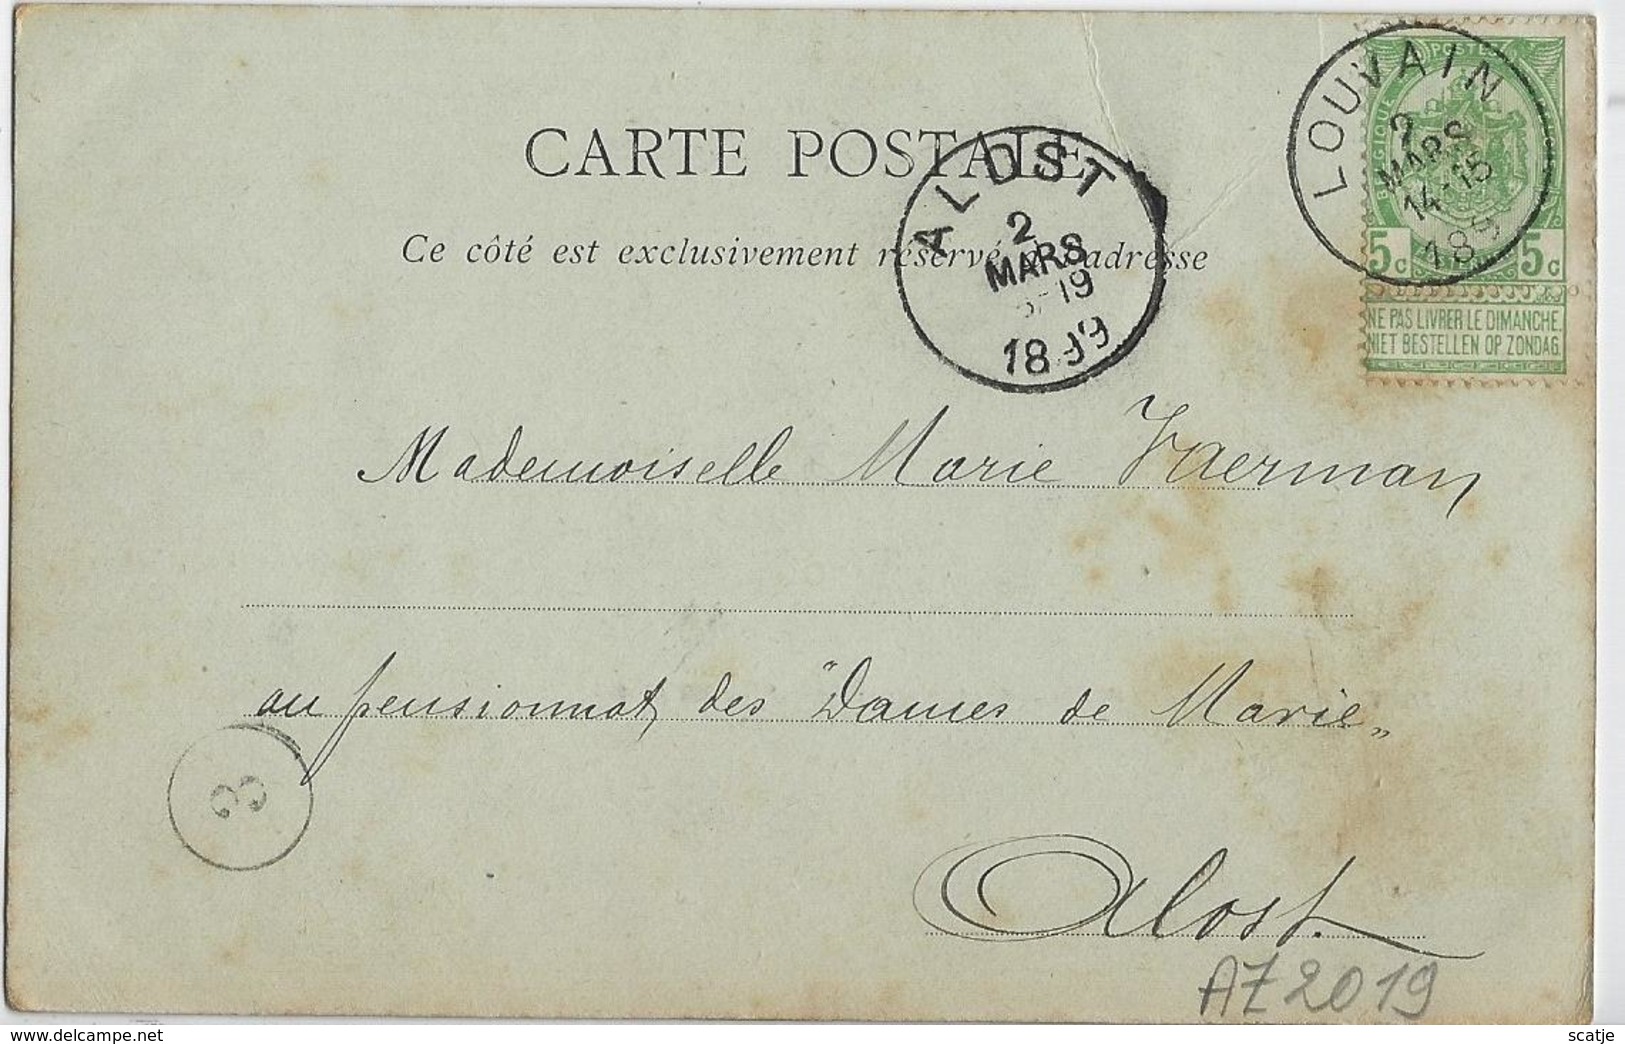 CARTE POSTALE
Ce côté est exclusivement réservé à l'adresse
POSTES
BELGIQUE
5c 5c
NE PAS LIVRER LE DIMANCHE.
NIET BESTELLEN OP ZONDAG
LOUVAIN
2
MARS
14-15
189
ALOST
2
MARS
-19
1899
Mademoiselle Marie Vaerman
au pensionnat des "Dames de Marie„
3
Alost.
AZ2019
delcampe.net
scatje